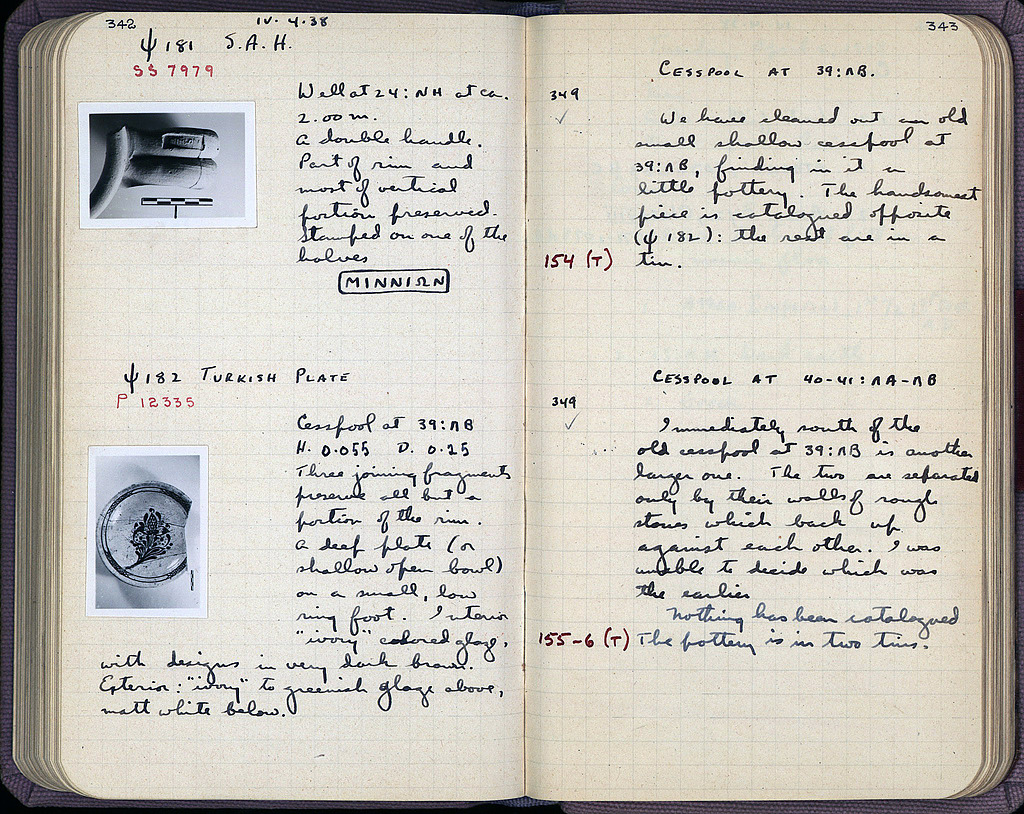 342
IV. 4.38
ψ 181 S.A.H.
SS 7979
Well at 24:ΝΗ at ca.
2.00 m.
A double handle.
Part of rim and
most of vertical
portion preserved.
Stamped on one of the
halves
ΜΙΝΝΙΩΝ
ψ 182 TURKISH PLATE
P 12335
Cesspool at 39:ΛΒ
H. 0.055 D. 0.25
Three joining fragments
preserve all but a
portion of the rim.
A deep plate (or
shallow open bowl)
on a small, low
ring foot. Interior
"ivory" colored glaze,
with designs in very dark brown.
Exterior: "ivory" to greenish glaze above,
matt white below.
343
CESSPOOL AT 39:ΛΒ.
349
✓
We have cleaned out an old
small shallow cesspool at
39:ΛΒ, finding in it a
little pottery. The handsomest
piece is catalogued opposite
(ψ 182): the rest are in a
154 (T) tin.
CESSPOOL AT 40-41:ΛΑ-ΛΒ
349
✓
Immediately south of the
old cesspool at 39:ΛΒ is another
larger one. The two are separated
only by their walls of rough
stones which back up
against each other. I was
unable to decide which was
the earlier
Nothing has been catalogued
155-6 (T) The pottery is in two tins.